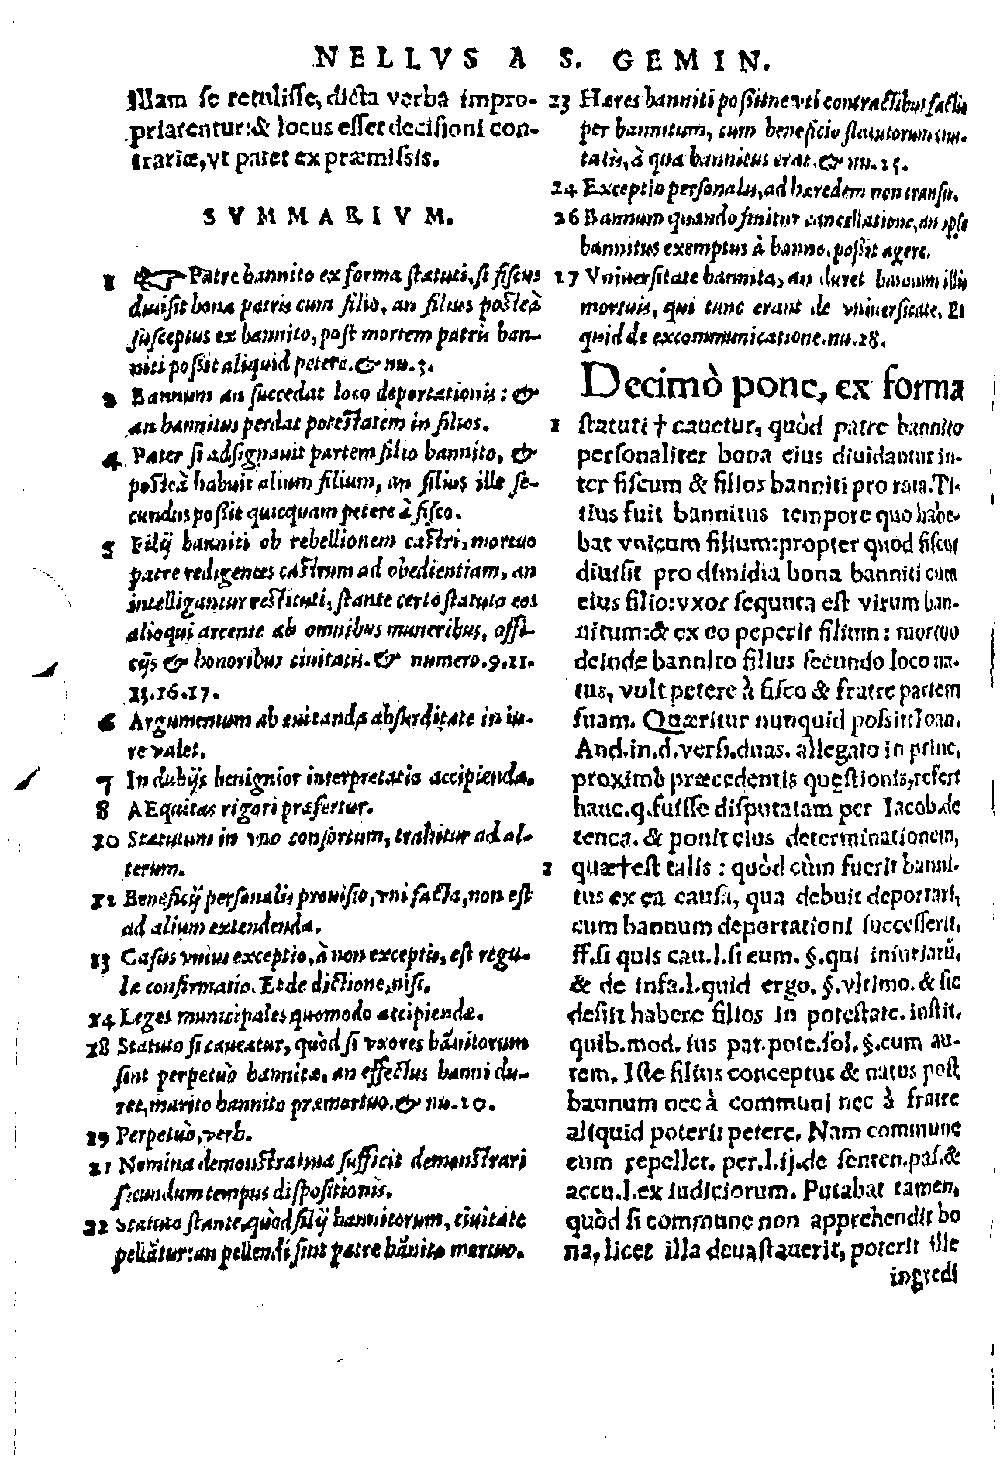 NELLVS A S. GEMIN.
illam se retulisse, dicta verba impro-
priarentur: & locus esset decisioni con-
trariæ, vt patet ex præmissis.
SVMMARIVM.
1 ☞ Patre bannito ex forma statuti, si fiscus
diuisit bona patris cum filio, an filius posteà
susceptus ex bannito, post mortem patris ban-
niti possit aliquid petere. & nu. 3.
2 Bannum an succedat loco deportationis: &
an bannitus perdat potestatem in filios.
4 Pater si adsignauit partem filio bannito, &
posteà habuit alium filium, an filius ille se-
cundus possit quicquam petere à fisco.
5 Filij banniti ob rebellionem castri, mortuo
patre redigentes castrum ad obedientiam, an
intelligantur restituti, stante certo statuto eos
alioqui arcente ab omnibus muneribus, offi-
cijs & honoribus ciuitatis. & numero. 9. 11.
15. 16. 17.
6 Argumentum ab euitanda absurditate in iu-
re valet.
7 In dubijs benignior interpretatio accipienda.
8 AEquitas rigori præfertur.
10 Statutum in vno consortum, trahitur ad al-
terum.
12 Beneficij personalis prouisio, vni facta, non est
ad alium extendenda.
13 Casus vnius exceptio, à non exceptis, est regu-
læ confirmatio. Et de dictione, nisi.
14 Leges municipales quomodo accipiendæ.
18 Statuto si caueatur, quòd si vxores bānitorum
sint perpetuò bannitæ, an effectus banni du-
ret, marito bannito præmortuo. & nu. 20.
19 Perpetuò, verb.
21 Nomina demonstratiua sufficit demonstrari
secundum tempus dispositionis.
22 Statuto stante, quòd filij bannitorum, ciuitate
pellātur: an pellendi sint patre bānito mortuo.
23 Hæres banniti possitne vti contractibus factis
per bannitum, cum beneficio statutorum ciui-
tatis, à qua bannitus erat. & nu. 25.
24 Exceptio personalis, ad hæredem non transit.
26 Bannum quando finitur cancellatione, an ipse
bannitus exemptus à banno, possit agere.
27 Vniuersitate bannita, an duret bannum illis
mortuis, qui tunc erant de vniuersitate. Et
quid de excommunicatione. nu. 28.
Decimò pone, ex forma
1 statuti † cauetur, quòd patre bannito
personaliter bona eius diuidantur in-
ter fiscum & filios banniti pro rata. Ti-
tius fuit bannitus tempore quo habe-
bat vnicum filium: propter quod fiscus
diuisit pro dimidia bona banniti cum
eius filio: vxor sequuta est virum ban-
nitum: & ex eo peperit filium: mortuo
deinde bannito filius secundo loco na-
tus, vult petere à fisco & fratre partem
suam. Quæritur nunquid possit. Ioan.
And. in. d. versi. duas. allegato in princ.
proximò præcedentis quęstionis, refert
hanc. q. fuisse disputatam per Iacob. de
tenca. & ponit eius determinationem,
2 quæ † est talis: quòd cùm fuerit banni-
tus ex ea causa, qua debuit deportari,
cum bannum deportationi successerit.
ff. si quis cau. l. si eum. §. qui iniuriarū.
& de infa. l. quid ergo. §. vltimo. & sic
desiit habere filios in potestate. instit.
quib. mod. ius pat. pote. sol. §. cum au-
tem. Iste filius conceptus & natus post
bannum nec à communi nec à fratre
aliquid poterit petere. Nam commune
eum repellet. per. l. ij. de senten. pas. &
accu. l. ex iudiciorum. Putabat tamen,
quòd si commune non apprehendit bo
na, licet illa deuastauerit, poterit ille
ingredi